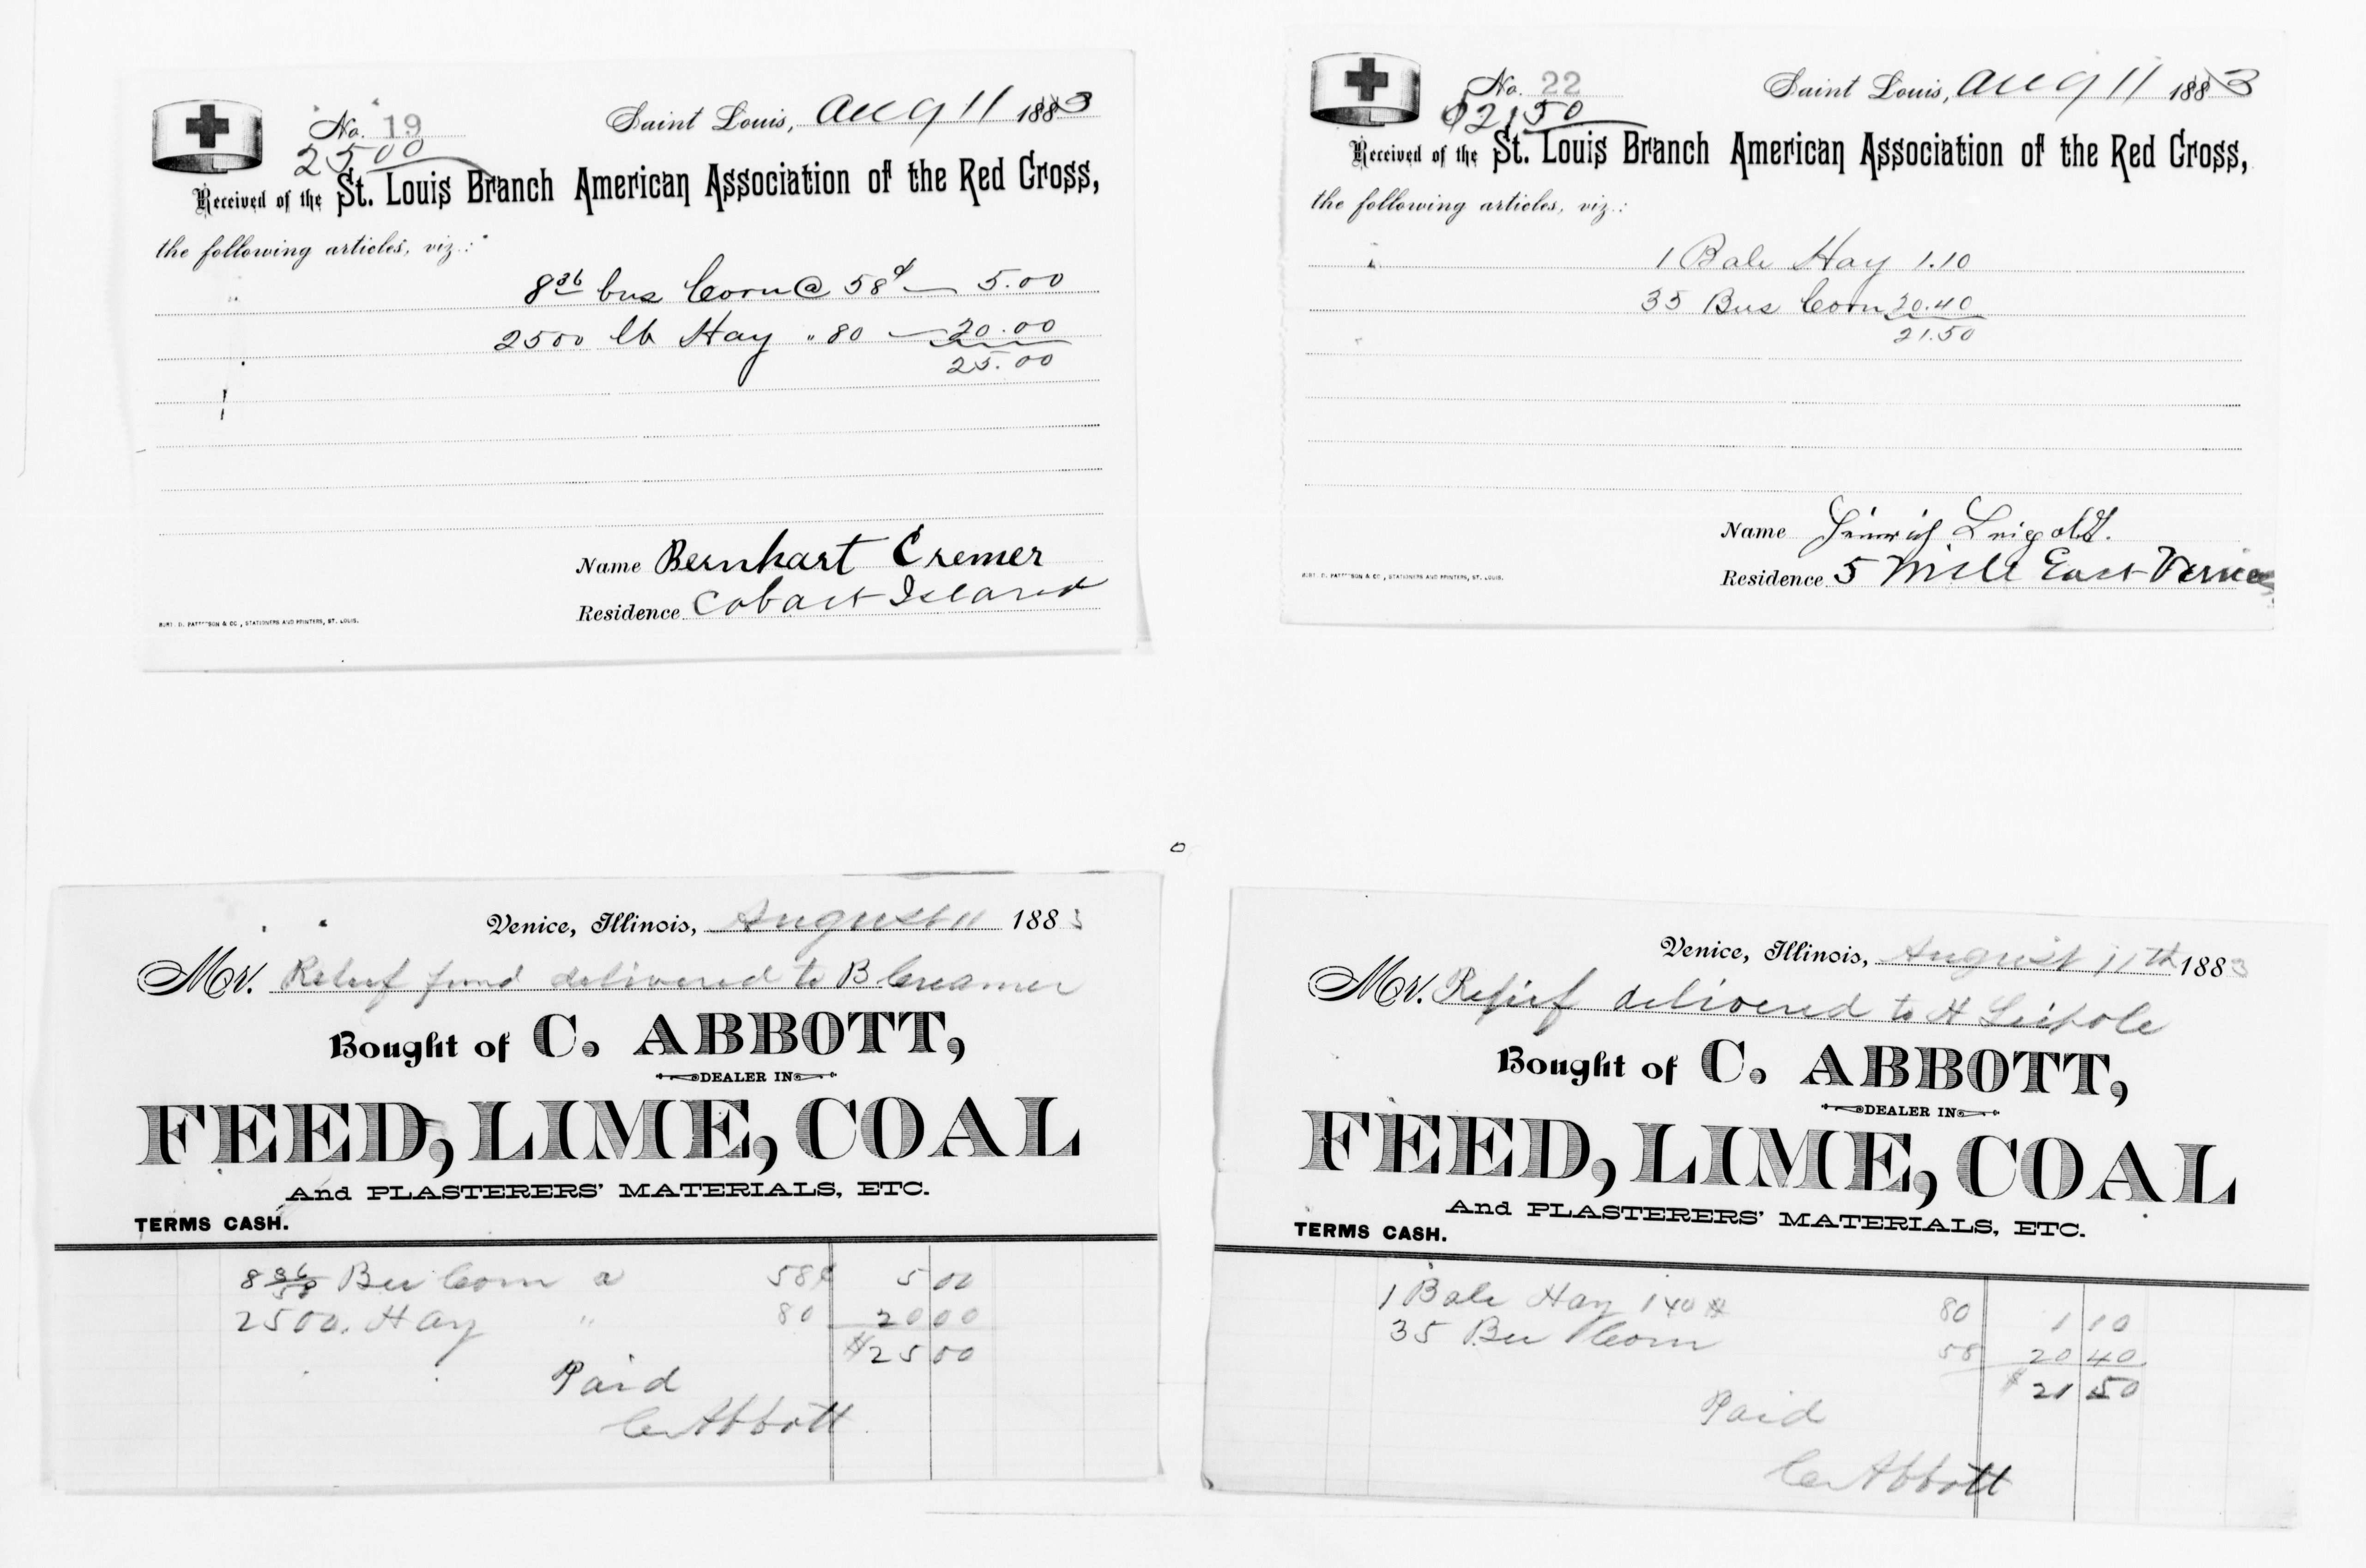 No. 19
Saint Louis, Aug 11 1883
25 00
Received of the St. Louis Branch American Association of the Red Cross,
the following articles, viz.:
8 36 bus Corn @ 58¢ — 5.00
2500 lb Hay " 80 — 20.00
25.00
Name Bernhart Cremer
Residence Island
STATIONERS AND PRINTERS, ST. LOUIS.
No. 22
Saint Louis, Aug 11 1883
$21 50
Received of the St. Louis Branch American Association of the Red Cross,
the following articles, viz.:
1 Bale Hay 1.10
35 Bus Corn 20.40
21.50
Name Heinrich Leipold.
Residence 5 Mile East Venice
STATIONERS AND PRINTERS, ST. LOUIS.
Venice, Illinois, August 11 1883
Mr. Relief fund delivered to B Creamer
Bought of C. ABBOTT,
DEALER IN
FEED, LIME, COAL
And PLASTERERS' MATERIALS, ETC.
TERMS CASH.
8 Bu Corn a 58¢ 5 00
2500. Hay " 80 20 00
$25 00
Paid
C Abbott
Venice, Illinois, August 11th 1883
Mr. Relief delivered to H Leipole
Bought of C. ABBOTT,
DEALER IN
FEED, LIME, COAL
And PLASTERERS' MATERIALS, ETC.
TERMS CASH.
1 Bale Hay 140 # 80 1 10
35 Bu Corn 58 20 40
$ 21 50
Paid
C Abbott